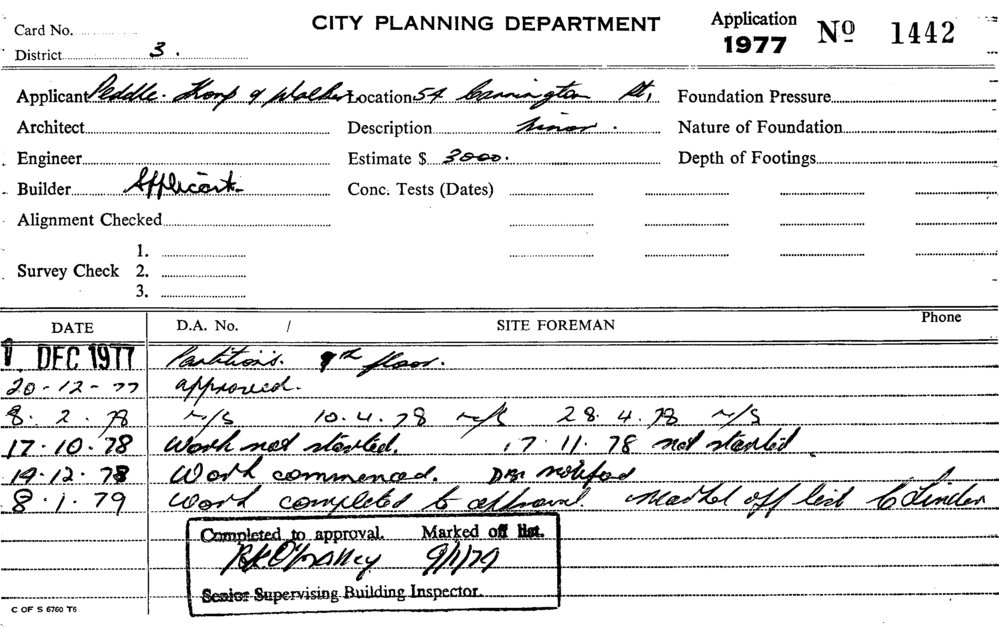 Card No. CITY PLANNING DEPARTMENT Application 1977 Nº 1442
District 3.
Applicant Peddle Thorp & Walker Location 54 Carrington St, Foundation Pressure
Architect Description minor. Nature of Foundation
Engineer Estimate $ 3000. Depth of Footings
Builder Applicant Conc. Tests (Dates)
Alignment Checked
1.
Survey Check 2.
3.
DATE D.A. No. / SITE FOREMAN Phone
1 DEC 1977 Partitions. 9th floor.
20-12-77 approved.
8.2.78 N/S 10.4.78 N/S 28.4.78 N/S
17.10.78 Work not started. 17.11.78 not started
19.12.78 Work commenced.
8.1.79 Work completed to approval. Marked off list
Completed to approval. Marked off list.
9/1/79
Senior Supervising Building Inspector.
C OF S 6760 T6